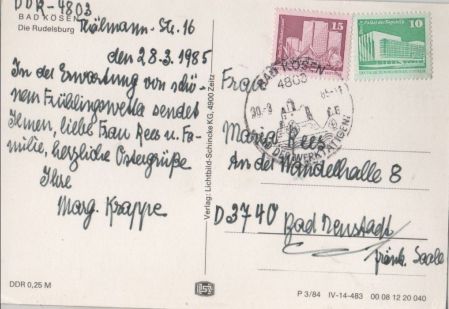 DDR-4803
BAD KÖSEN
Die Rudelsburg
Str. 16
den 28.3.1985
In der Erwartung von schö-
nem Frühlingswetter sendet
Ihnen, liebe Frau Rees u. Fa-
milie, herzliche Ostergrüße
Ihre
Marg. Krappe
DDR 0,25 M
Verlag: Lichtbild-Schincke KG, 4900 Zeitz
15
10
Palast der Republik
BAD KÖSEN
4803
Frau
Maria Rees
An der Wandelhalle 8
D 3740 Bad Neustadt
fränk. Saale
P 3/84 IV-14-483 00 08 12 20 040